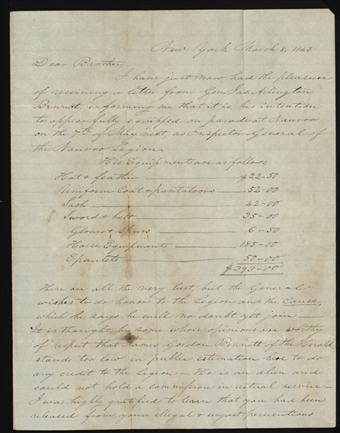 New York March 8, 1843
Dear Brother,
I have just now had the pleasure
of receiving a letter from Gen Jas Arlington
Bennet, informing me that it is his intention
to appear fully equipped on parade at Nauvoo
on the 7th of May next as Inspector General of
the Nauvoo Legion.
His Equipment are as follows
Hat & feather $22-50
Uniform Coat & pantaloons 52-00
Sash 42-00
Sword & belt 35-00
Gloves & Spurs 6-50
Horse Equipments 185-00
Epaulets 50-00
$393-00
These are all the very best, but the General
wishes to do honor to the Legion and the Cause,
which he says he will no doubt yet join
It is thought by some whose opinions are worthy
of respect that James Gordon Bennett of the Herald
stands too low in public estimation here to do
any credit to the Legion - He is an alien and
could not hold a commission in actual service -
I was highly gratified to learn that you had been
released from your illegal & unjust persecutions